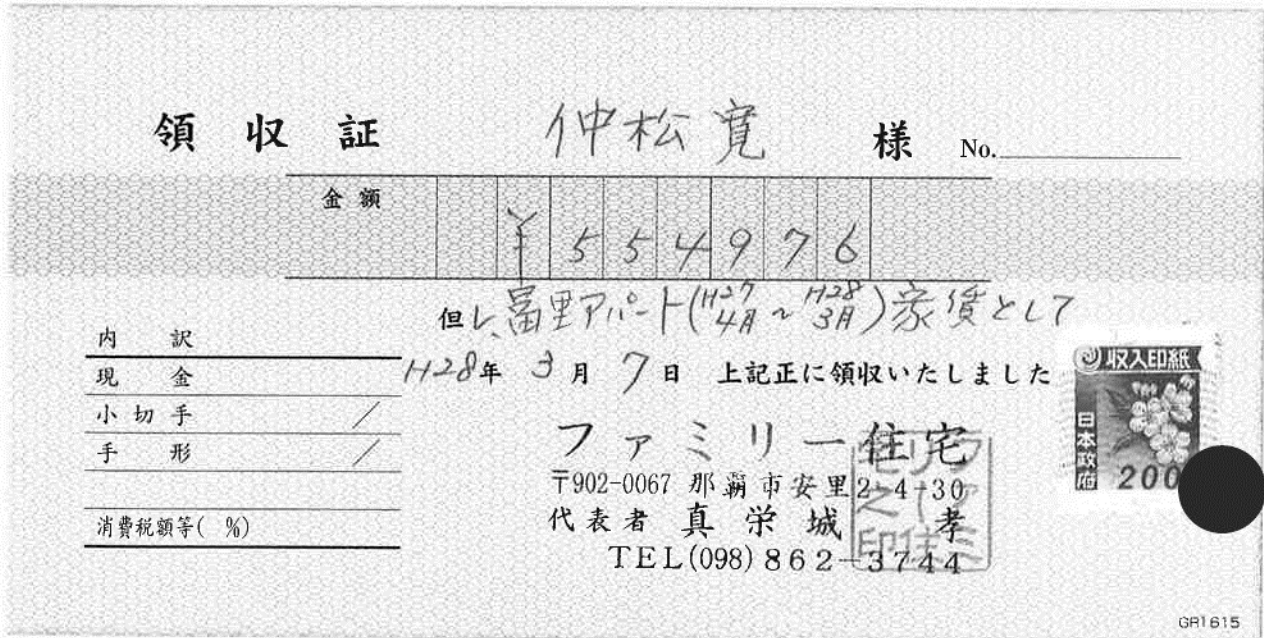 領収証 仲松寛 様 No.
金額 ¥554976
但し、冨里アパート(H27 4月~H28 3月)家賃として
H28年 3月 7日 上記正に領収いたしました
内訳
現金
小切手 /
手形 /
消費税額等( %)
収入印紙
日本政府
200
ファミリー住宅
〒902-0067 那覇市安里2-4-30
代表者 真栄城 孝
TEL(098)862-3744
ファミリー住宅之印
GR1615